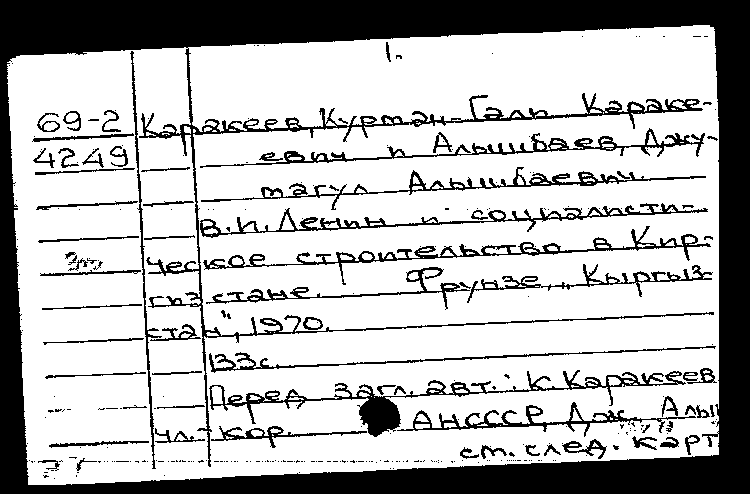 1.
69-2 Каракеев, Курман-Гали Караке-
4249 евич и Алышбаев, Джу-
магул Алышбаевич.
В.И. Ленин и социалисти-
ческое строительство в Кир-
гизстане. Фрунзе, „Кыргыз-
стан", 1970.
133с.
Перед загл. авт.: К. Каракеев
чл.-кор. АНСССР, Дж. Алы
см. след. карт